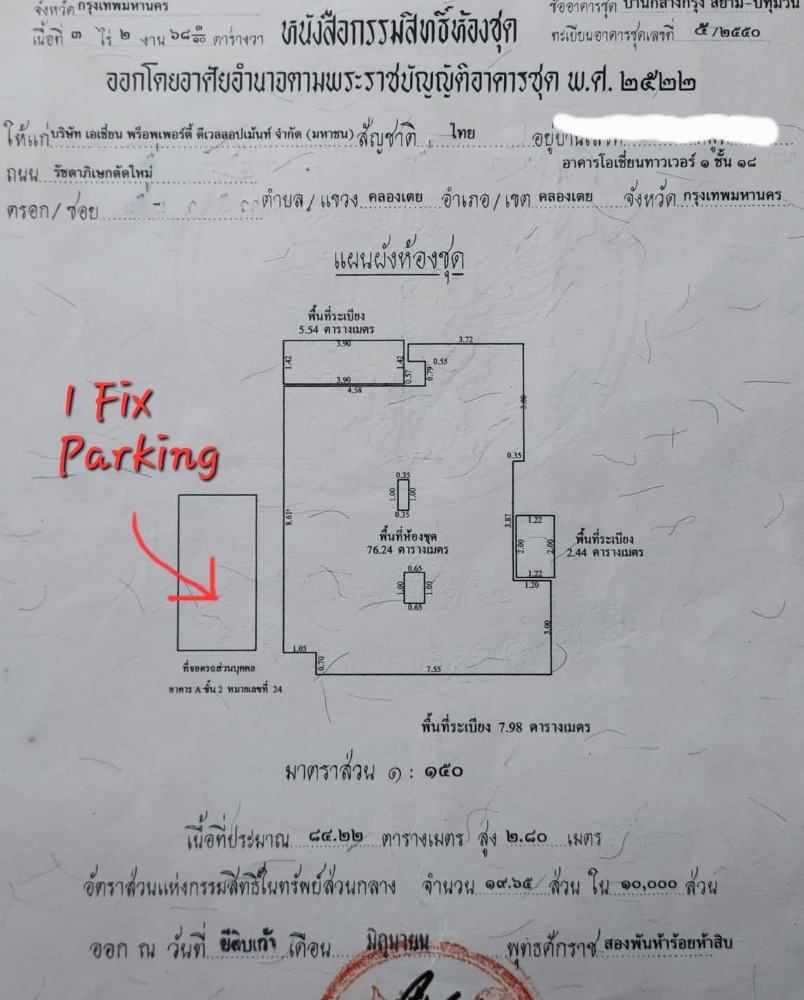 จังหวัด กรุงเทพมหานคร
ชื่ออาคารชุด บ้านกลางกรุง สยาม-ปทุมวัน
เนื้อที่ ๓ ไร่ ๒ งาน ๖๘ ตารางวา
หนังสือกรรมสิทธิ์ห้องชุด
ทะเบียนอาคารชุดเลขที่ ๕/๒๕๕๐
ออกโดยอาศัยอำนาจตามพระราชบัญญัติอาคารชุด พ.ศ. ๒๕๒๒
ให้แก่ บริษัท เอเชี่ยน พร็อพเพอร์ตี้ ดีเวลลอปเม้นท์ จำกัด (มหาชน) สัญชาติ ไทย
ถนน รัชดาภิเษกตัดใหม่ อาคารโอเชี่ยนทาวเวอร์ ๑ ชั้น ๑๘
ตรอก/ซอย ตำบล/แขวง คลองเตย อำเภอ/เขต คลองเตย จังหวัด กรุงเทพมหานคร
แผนผังห้องชุด
พื้นที่ระเบียง
5.54 ตารางเมตร
3.90
3.72
1.42
1.42
0.55
0.57
0.79
3.90
4.58
3.80
1 Fix
Parking
0.35
0.35
1.00
1.00
0.35
8.61
3.87
พื้นที่ห้องชุด
76.24 ตารางเมตร
1.22
2.00
2.00
พื้นที่ระเบียง
2.44 ตารางเมตร
0.65
1.00
1.00
0.65
1.22
1.20
3.00
1.05
0.70
7.55
ที่จอดรถส่วนบุคคล
อาคาร A ชั้น 2 หมายเลขที่ 24
พื้นที่ระเบียง 7.98 ตารางเมตร
มาตราส่วน ๑ : ๑๕๐
เนื้อที่ประมาณ ๘๔.๒๒ ตารางเมตร สูง ๒.๘๐ เมตร
อัตราส่วนแห่งกรรมสิทธิ์ในทรัพย์ส่วนกลาง จำนวน ๑๙.๖๕ ส่วน ใน ๑๐,๐๐๐ ส่วน
ออก ณ วันที่ ยี่สิบเก้า เดือน มิถุนายน พุทธศักราช สองพันห้าร้อยห้าสิบ